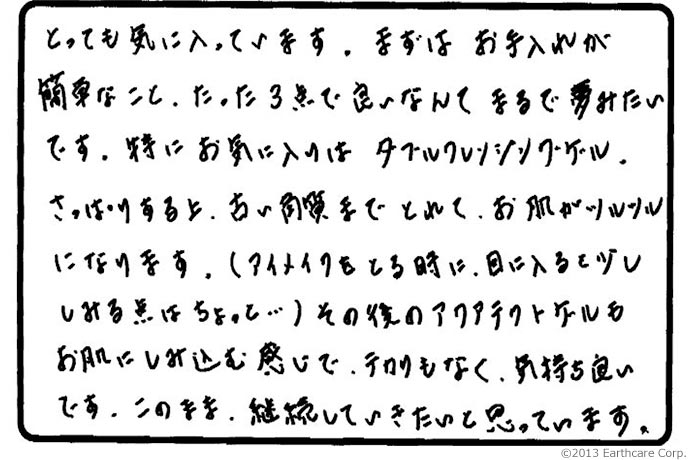 とっても気に入っています。まずは お手入れが
簡単なこと、たった3点で良いなんて まるで夢みたい
です。特に お気に入りは ダブルクレンジングゲル。
さっぱりすると、古い角質まで とれて、お肌がツルツル
になります。(アイメイクをとる時に、目に入ると少し
しみる点は ちょっと…)その後の アクアテクトゲルも
お肌に しみ込む感じで、テカリもなく、気持ち良い
です。このまま、継続していきたいと思っています。
©2013 Earthcare Corp.